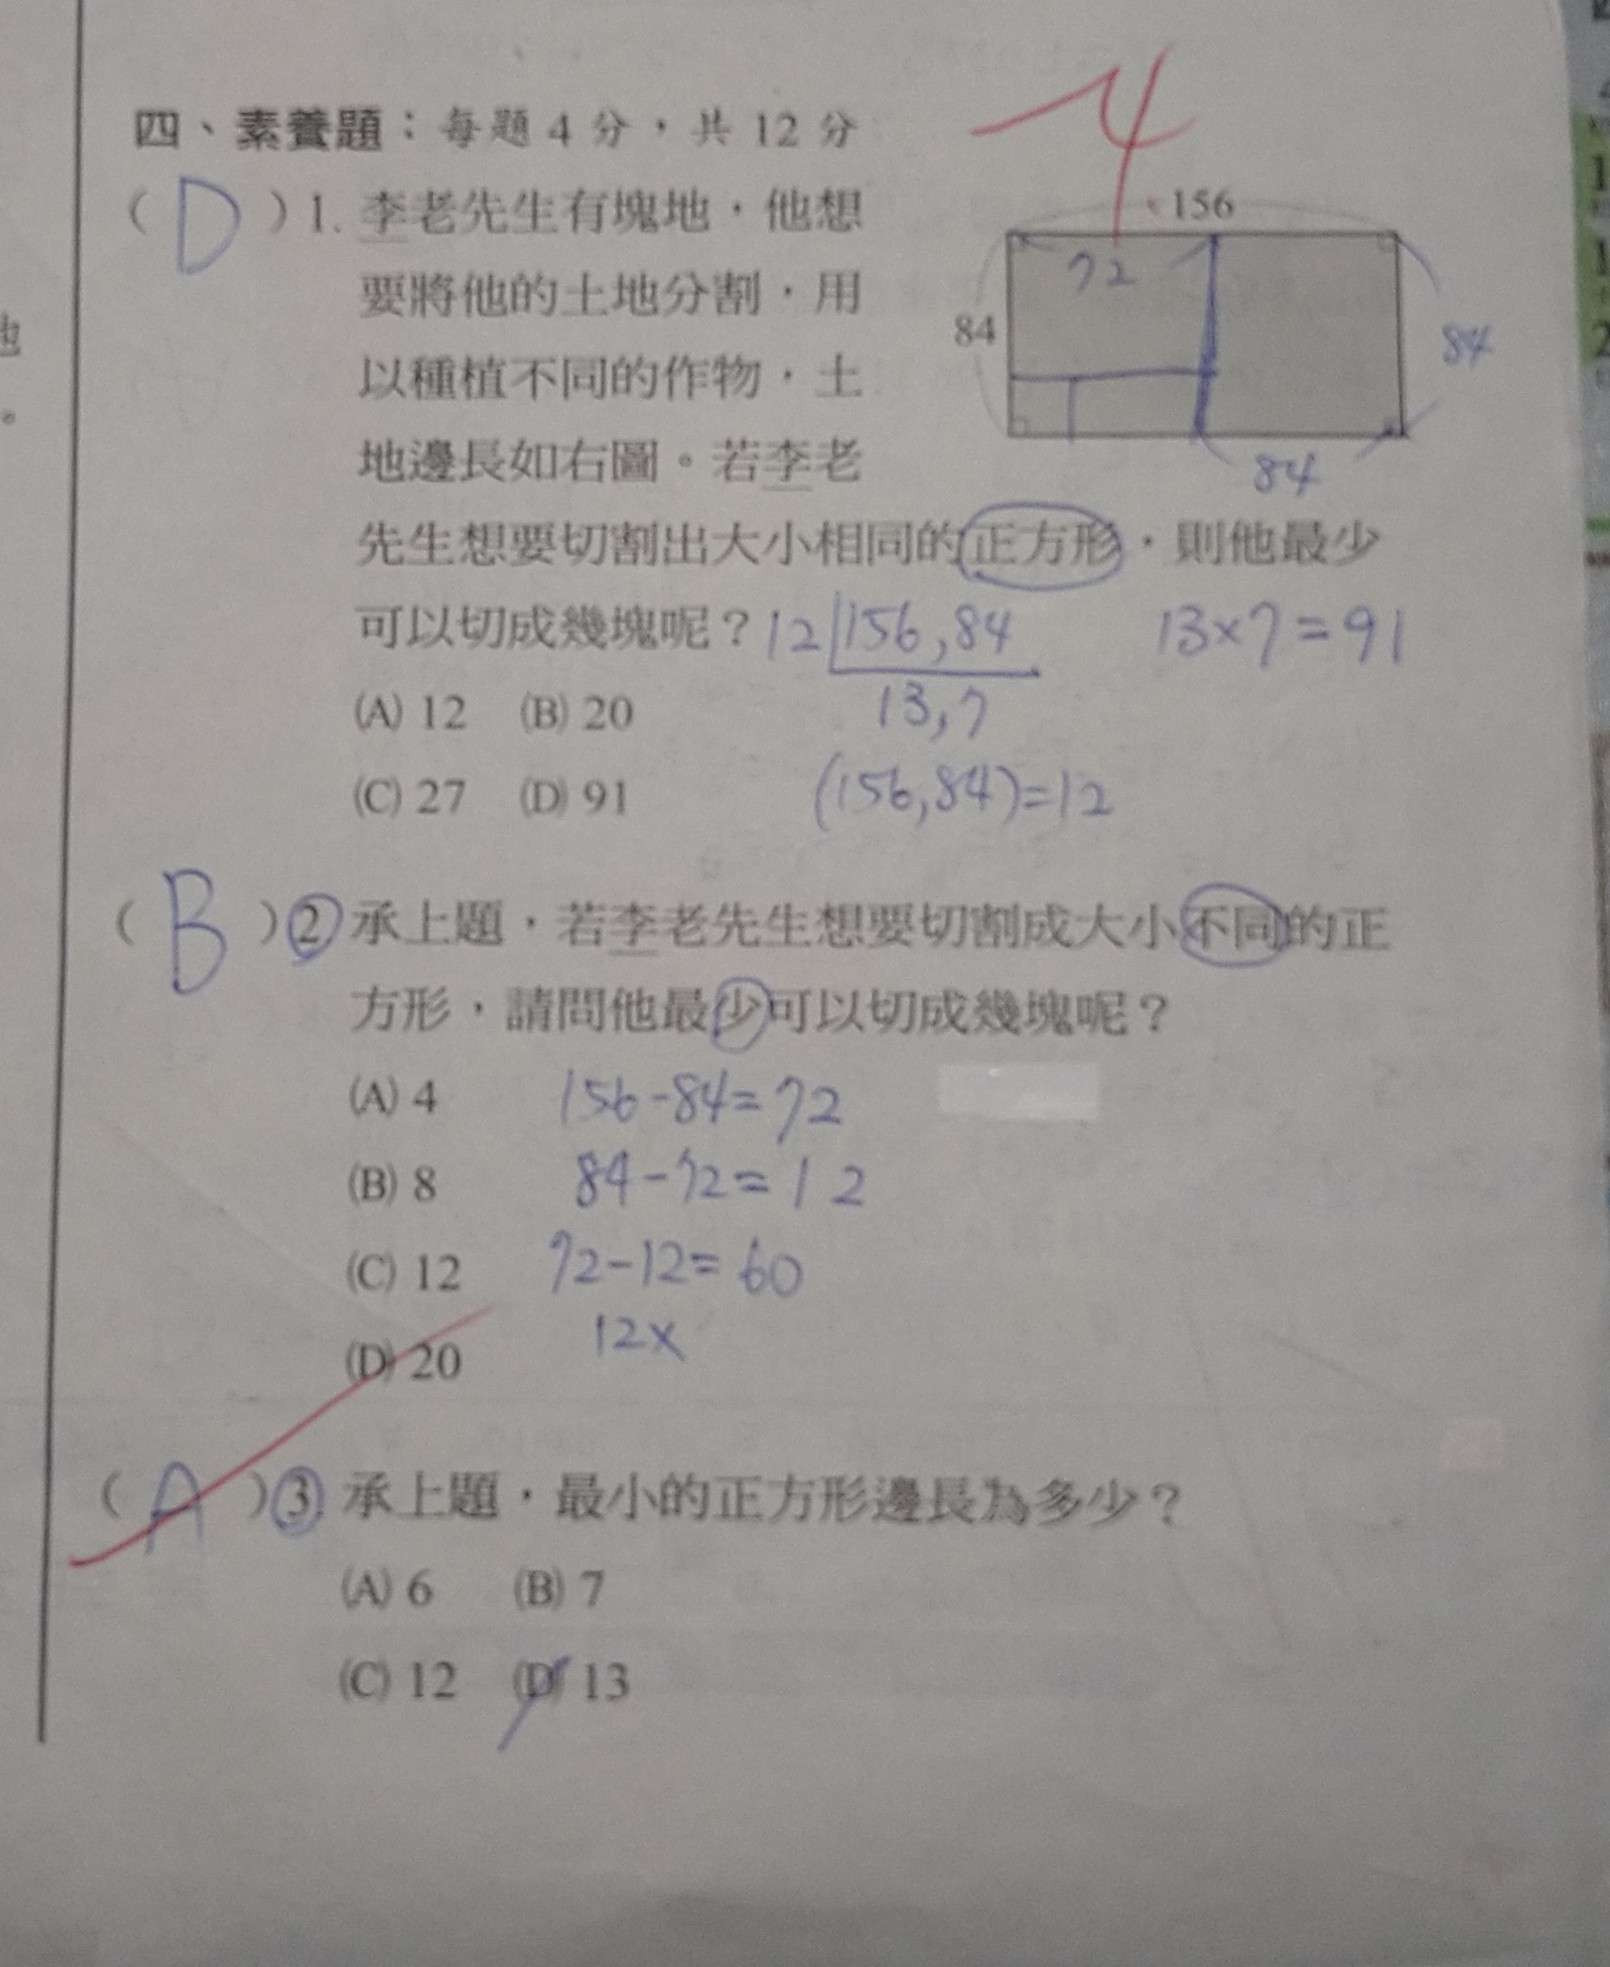 四、素養題：每題 4 分，共 12 分
-4
( D ) 1. 李老先生有塊地，他想
要將他的土地分割，用
以種植不同的作物，土
地邊長如右圖。若李老
156
72
84
84
84
先生想要切割出大小相同的正方形，則他最少
可以切成幾塊呢？ 12 156,84 13×7=91
13,7
(A) 12 (B) 20
(C) 27 (D) 91 (156,84)=12
( B ) 2 承上題，若李老先生想要切割成大小不同的正
方形，請問他最少可以切成幾塊呢？
(A) 4 156-84=72
(B) 8 84-72=12
(C) 12 72-12=60
(D) 20 12×
( A ) 3. 承上題，最小的正方形邊長為多少？
(A) 6 (B) 7
(C) 12 (D) 13
也
。